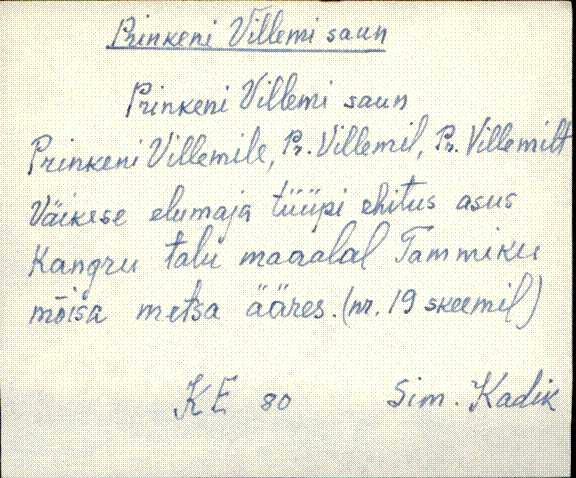 Prinkeni Villemi saun
Prinkeni Villemi saun
Prinkeni Villemile, Pr. Villemil, Pr. Villemilt
Väikese elumaja tüüpi ehitus asus
Kangru talu maaalal Tammiku
mõisa metsa ääres. (nr. 19 skeemil)
KE 80 Sim. Kadik